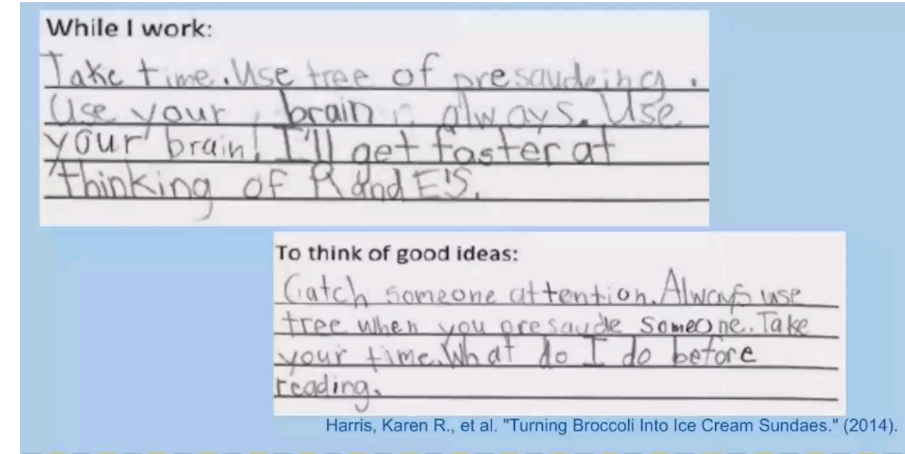 While I work:
Take time. Use tree of presaudeing.
Use your brain always. Use
your brain! I'll get faster at
thinking of R and E'S.
To think of good ideas:
Catch someone attention. Always use
tree when you presaude someone. Take
your time. What do I do before
reading.
Harris, Karen R., et al. "Turning Broccoli Into Ice Cream Sundaes." (2014).